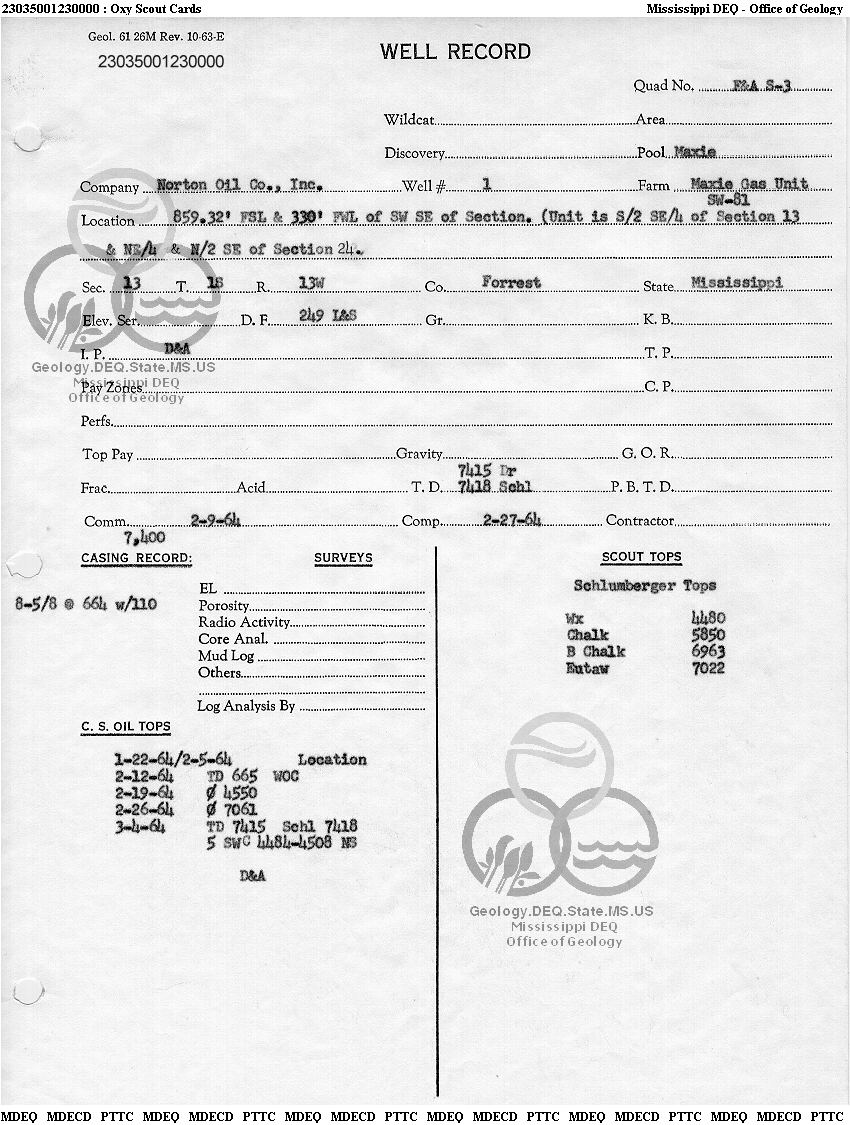 23035001230000 : Oxy Scout Cards Mississippi DEQ - Office of Geology
Geol. 61 26M Rev. 10-63-E
23035001230000
WELL RECORD
Quad No. F&A S-3
Wildcat Area
Discovery Pool Maxie
Company Norton Oil Co., Inc. Well # 1 Farm Maxie Gas Unit
SW-81
Location 859.32' FSL & 330' FWL of SW SE of Section. (Unit is S/2 SE/4 of Section 13
& NE/4 & N/2 SE of Section 24.
Sec. 13 T. 1S R. 13W Co. Forrest State Mississippi
Elev. Ser. D. F. 249 L&S Gr. K. B.
I. P. D&A T. P.
Geology.DEQ.State.MS.US
Mississippi DEQ
Office of Geology
Pay Zones C. P.
Perfs.
Top Pay Gravity G. O. R.
7415 Dr
Frac. Acid T. D. 7418 Schl P. B. T. D.
Comm. 2-9-64 Comp. 2-27-64 Contractor
7,400
CASING RECORD: SURVEYS SCOUT TOPS
8-5/8 @ 664 w/110
EL
Porosity
Radio Activity
Core Anal.
Mud Log
Others
Log Analysis By
Schlumberger Tops
Wx 4480
Chalk 5850
B Chalk 6963
Eutaw 7022
C. S. OIL TOPS
1-22-64/2-5-64 Location
2-12-64 TD 665 WOC
2-19-64 Ø 4550
2-26-64 Ø 7061
3-4-64 TD 7415 Schl 7418
5 SWC 4484-4508 NS
D&A
Geology.DEQ.State.MS.US
Mississippi DEQ
Office of Geology
MDEQ MDECD PTTC MDEQ MDECD PTTC MDEQ MDECD PTTC MDEQ MDECD PTTC MDEQ MDECD PTTC MDEQ MDECD PTTC